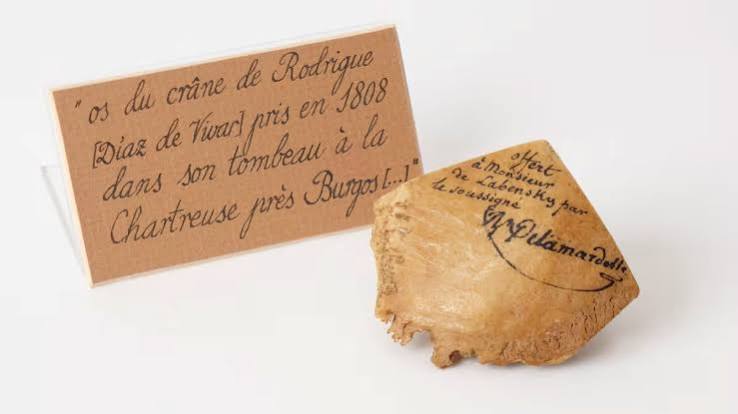 "os du crâne de Rodrigue
[Díaz de Vivar] pris en 1808
dans son tombeau à la
Chartreuse près Burgos [...]"
offert
à Monsieur
de Labensky par
le soussigné
Delamardelle